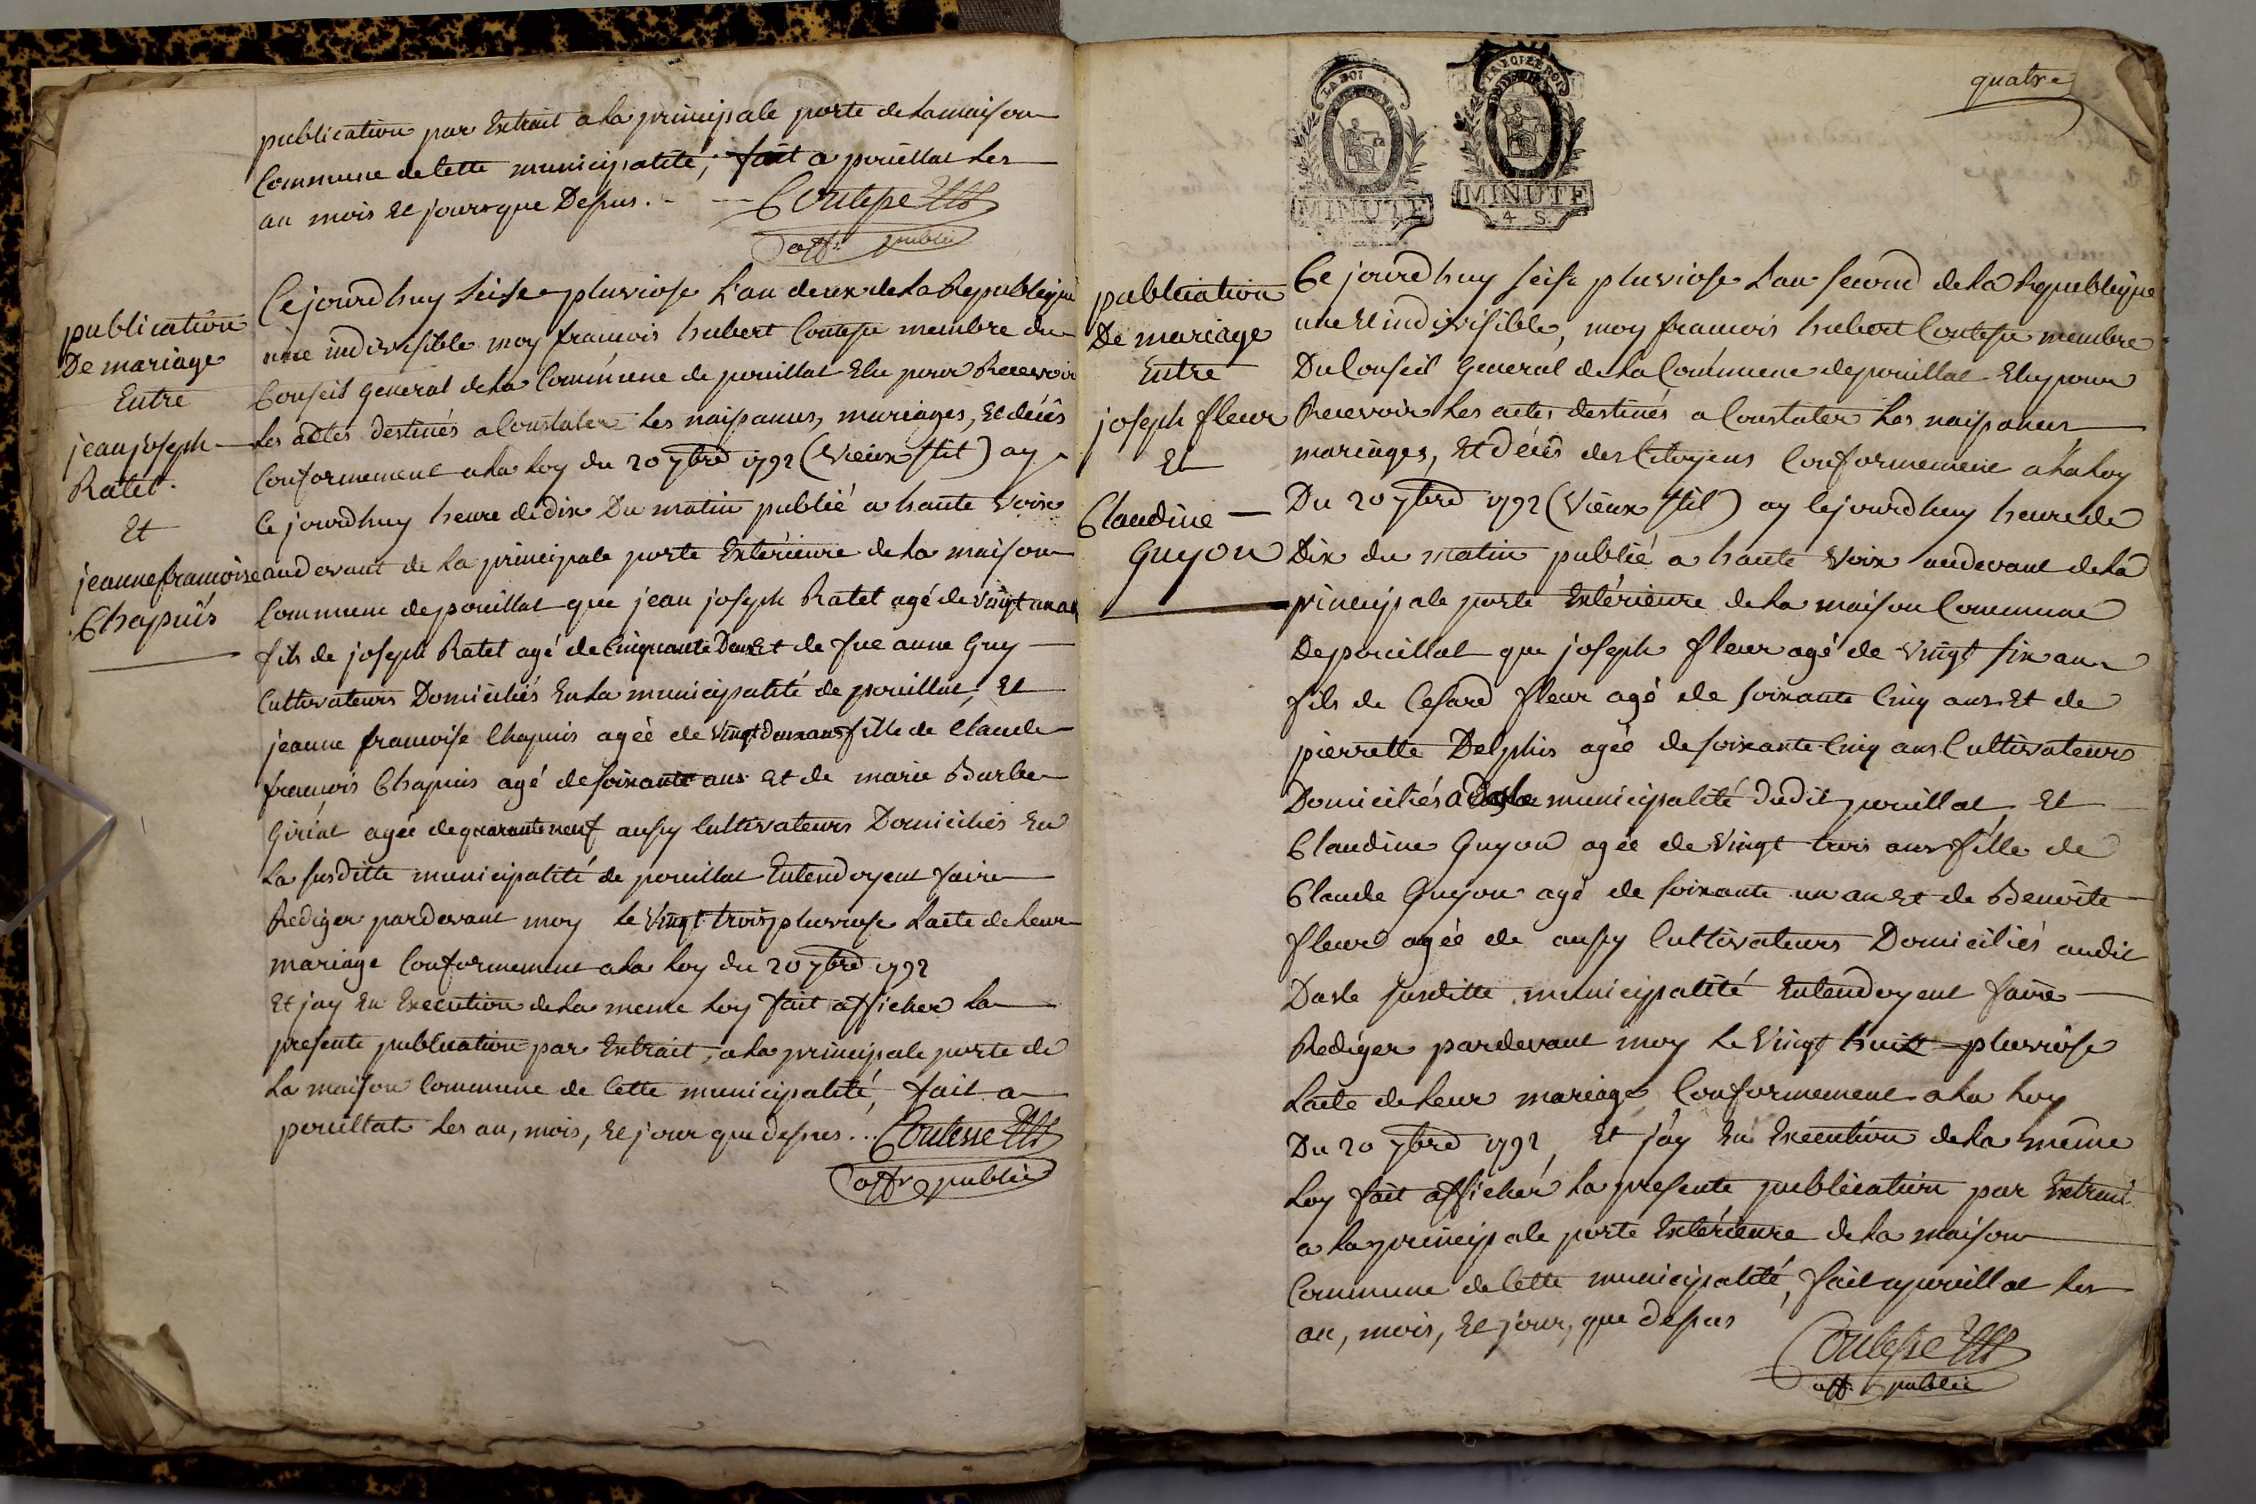 publication par Extrait a la principale porte de la maison
Commune de Cette municipalité, fait a pouillat Les
an mois Et jours que Dessus.
Coutesse
off. public
publication
De mariage
Entre
jean joseph
Ratet.
Et
jeanne francoise
Chapuis
Ce jourd'huy seise pluviose L'an deux de La Republique
une indivisible moy francois hubert Coutesse membre du
Conseil general de La Commune de pouillat Elu pour Recevoir
Les actes destinés a Constater Les naissances, mariages, Et décés
Conformement a La Loy du 20 7bre 1792 (vieux stil) ay
Ce jourd'huy heure de dix Du matin publié a haute voix
audevant de La principale porte Exterieure de La maison
Commune de pouillat que jean joseph Ratet agé de vingt un an
fils de joseph Ratet agé de Cinquante Deux Et de fue anne Guy
Cultivateurs Domiciliés En La municipalité de pouillat, Et
jeanne francoise Chapuis agéé de vingt Deux ans fille de Claude
francois Chapuis agé de soixante ans Et de marie Barbe
Giriat agée de quarante neuf aussy Cultivateurs Domiciliés En
La susditte municipalité de pouillat Entendoyent faire
Rediger pardevant moy Le vingt trois pluviose Lacte de Leur
mariage Conformement a La Loy du 20 7bre 1792
Et jay En Execution de La meme Loy fait afficher La
presente publication par Extrait, a La principale porte de
La maison Commune de Cette municipalité, fait a
pouillat Les an, mois, Et jour que dessus..
Coutesse
off. public
quatre
LA LOI
LA LOI ET LE ROI
MINUTE
MINUTE
4 S.
publication
De mariage
Entre
joseph fleur
Et
Claudine
Guyon
Ce jourd huy seise pluviose L'an second de La Republique
une Et indivisible, moy francois hubert Coutesse membre
Du Conseil General de La Commune de pouillat Elu pour
Recevoir Les actes destinés a Constater Les naissances
mariages, Et décés des Citoyens Conformement a La Loy
Du 20 7bre 1792 (vieux stil) ay Cejourd huy heure de
Dix du matin publié a haute voix audevant de La
principale porte Extérieure de La maison Commune
De pouillat que joseph fleur agé de vingt six ans
fils de Cesard fleur agé de soixante Cinq ans Et de
pierrette Delphis agée de soixante Cinq ans Cultivateurs
Domiciliés a Dasle municipalité dudit pouillat, Et
Claudine Guyon agée de vingt trois ans fille de
Claude Guyon agé de soixante un an Et de Benoite
fleur agéé de aussy Cultivateurs Domiciliés audit
Dasle susditte municipalité Entendoyent faire
Rediger pardevant moy Le vingt huit pluviose
Lacte de Leur mariage Conformement a La Loy
Du 20 7bre 1792, Et j'ay En Execution de La même
Loy fait afficher La presente publication par Extrait
a La principale porte Extérieure de La maison
Commune de Cette municipalité, fait a pouillat Les
an, mois, Et jour, que dessus
Coutesse
off. public